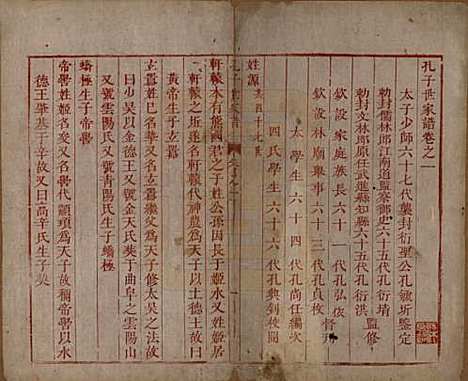 孔子世家譜卷之一
太子少師六十七代襲封衍聖公孔毓圻鑒定
勅封儒林郎江南道監察御史六十五代孔衍
勅封文林郎原任武進縣知縣六十五代孔衍洪
監修
欽設家庭族長六十一代孔弘依
欽設林廟舉事六十三代孔貞枚
督刊
太學生六十四代孔尚任編次
四氏學生六十六代孔興到校閱
姓源
軒轅本有熊國君之子姓公孫因長于姬水又姓姬
軒轅之近名軒轅代神農為天子以土德王號
黃帝生子玄囂
玄囂姓己又姓姬為天子修太昊之法
曰少昊以金德王號金天氏葬于曲阜之雲陽山
又號青陽氏生子蟜極
蟜極生子帝嚳
帝嚳姓姬名嚳代顓頊為天子故稱帝嚳以水
德王肇基于辛故又曰高辛氏生子契
孔子世家譜